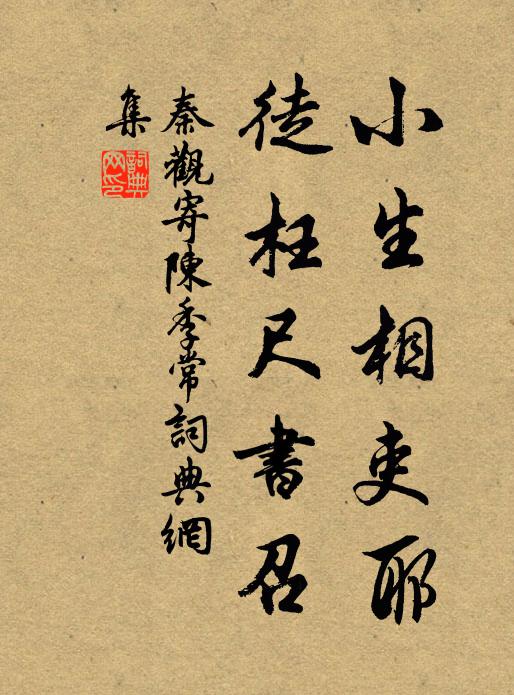 小生相吏耶
徒枉尺書召
秦觀寄陳季常詞典網
集
詞典網印